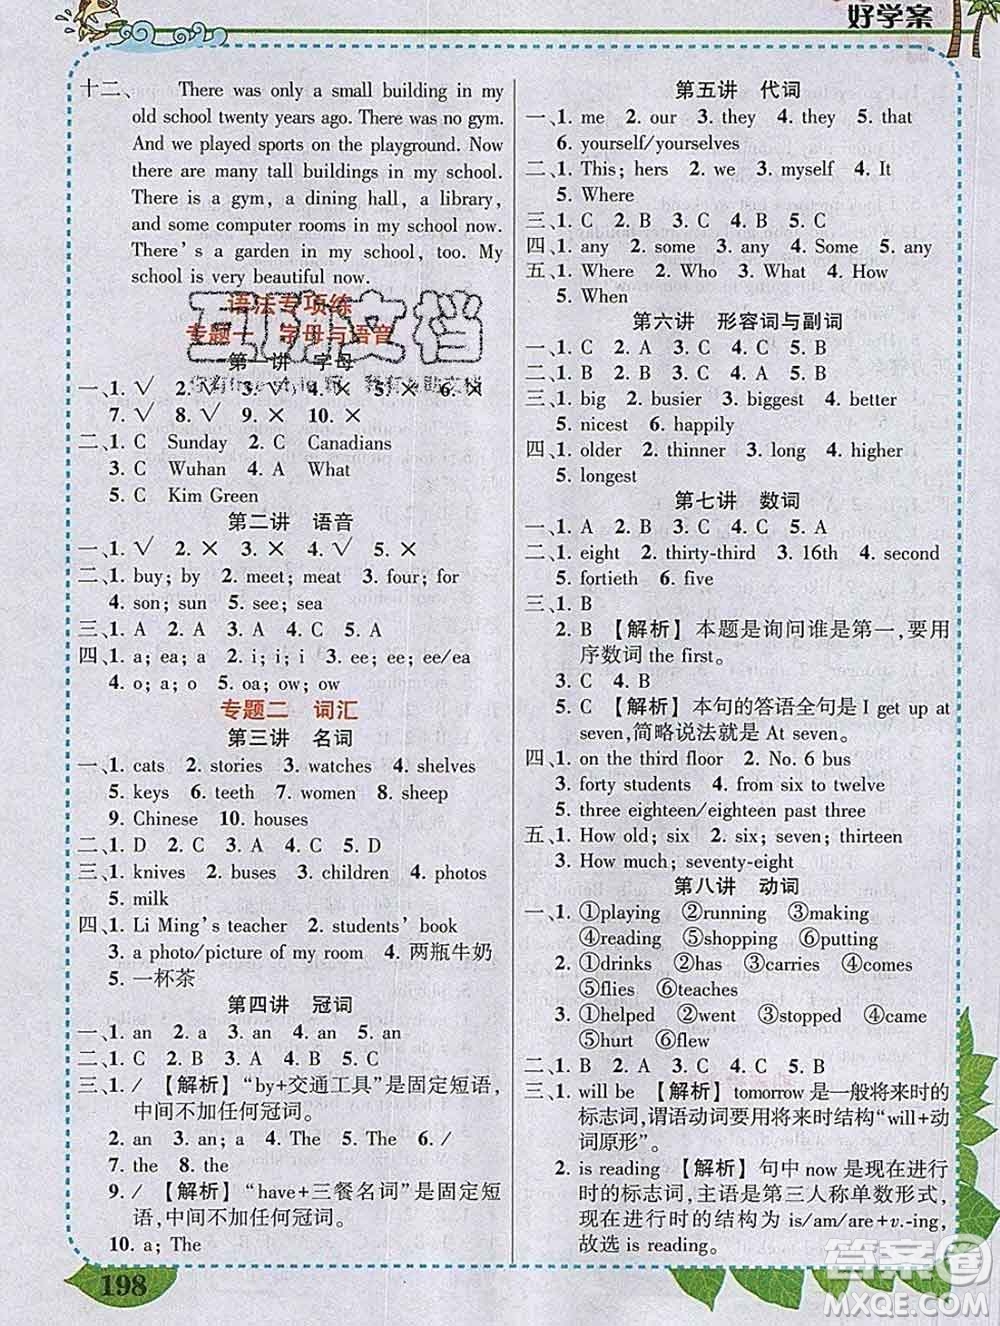 好学案
十二、 There was only a small building in my
old school twenty years ago. There was no gym.
And we played sports on the playground. Now
there are many tall buildings in my school.
There is a gym, a dining hall, a library,
and some computer rooms in my school now.
There's a garden in my school, too. My
school is very beautiful now.
语法专项练
专题一 字母与语音
第一讲 字母
一、1. √ 2. 3. √ 4. × 5. × 6. ×
7. √ 8. √ 9. × 10. ×
二、1. C Sunday 2. C Canadians
3. C Wuhan 4. A What
5. C Kim Green
第二讲 语音
一、1. √ 2. × 3. × 4. √ 5. ×
二、1. buy; by 2. meet; meat 3. four; for
4. son; sun 5. see; sea
三、1. A 2. A 3. C 4. B 5. A
四、1. a; ea; a 2. i; i; i 3. ee; ee; ee/ea
4. o; a; o 5. oa; ow; ow
专题二 词汇
第三讲 名词
一、1. cats 2. stories 3. watches 4. shelves
5. keys 6. teeth 7. women 8. sheep
9. Chinese 10. houses
二、1. D 2. C 3. A 4. C 5. D
三、1. knives 2. buses 3. children 4. photos
5. milk
四、1. Li Ming's teacher 2. students' book
3. a photo/picture of my room 4. 两瓶牛奶
5. 一杯茶
第四讲 冠词
一、1. an 2. a 3. an 4. an 5. an
二、1. C 2. B 3. A 4. C 5. B
三、1. / 【解析】“by+交通工具”是固定短语，
中间不加任何冠词。
2. an 3. an; a 4. The 5. The 6. /
7. the 8. the
9. / 【解析】“have+三餐名词”是固定短
语，中间不加任何冠词。
10. a; The
198
第五讲 代词
一、1. me 2. our 3. they 4. they 5. that
6. yourself/yourselves
二、1. This; hers 2. we 3. myself 4. It
5. Where
三、1. C 2. B 3. C 4. B 5. C
四、1. any 2. some 3. any 4. Some 5. any
五、1. Where 2. Who 3. What 4. How
5. When
第六讲 形容词与副词
一、1. B 2. A 3. C 4. C 5. B
二、1. B 2. A 3. A 4. C 5. B
三、1. big 2. busier 3. biggest 4. better
5. nicest 6. happily
四、1. older 2. thinner 3. long 4. higher
5. longest
第七讲 数词
一、1. A 2. B 3. A 4. C 5. A
二、1. eight 2. thirty-third 3. 16th 4. second
5. fortieth 6. five
三、1. B
2. B 【解析】本题是询问谁是第一，要用
序数词 the first。
3. C 4. C
5. C 【解析】本句的答语全句是 I get up at
seven，简略说法就是 At seven。
四、1. on the third floor 2. No. 6 bus
3. forty students 4. from six to twelve
5. three eighteen/eighteen past three
五、1. How old; six 2. six; seven; thirteen
3. How much; seventy-eight
第八讲 动词
一、1. ①playing ②running ③making
④reading ⑤shopping ⑥putting
2. ①drinks ②has ③carries ④does
⑤flies ⑥teaches
3. ①helped ②went ③stopped ④came
⑤hurt ⑥flew
二、1. C 2. B 3. A 4. C 5. B
三、1. will be 【解析】tomorrow 是一般将来时的
标志词，谓语动词要用将来时结构“will+动
词原形”。
2. is reading 【解析】句中 now 是现在进行
时的标志词，主语是第三人称单数形式，
现在进行时的结构为 is/am/are+v.-ing，
故选 is reading。
答案圈
MXQE.COM